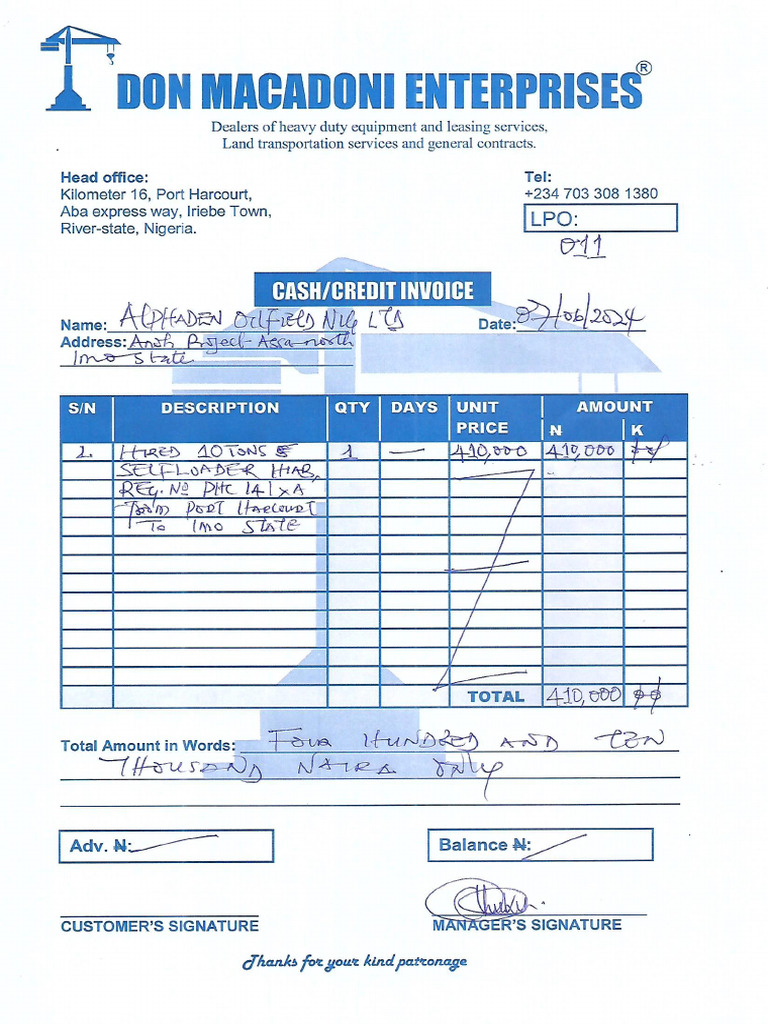 DON MACADONI ENTERPRISES®
Dealers of heavy duty equipment and leasing services,
Land transportation services and general contracts.
Head office:
Kilometer 16, Port Harcourt,
Aba express way, Iriebe Town,
River-state, Nigeria.
Tel:
+234 703 308 1380
LPO:
011
CASH/CREDIT INVOICE
Name: ALPHADEN OILFIELD NIG LTD
Date: 07/06/2024
Address: Anoh Project Assa north
Imo State
S/N DESCRIPTION QTY DAYS UNIT PRICE AMOUNT ₦ K
1. HIRED 10 TONS 1 — 410,000 410,000
SELFLOADER HIAB,
REG. No PHC 141XA
FROM PORT HARCOURT
TO IMO STATE
TOTAL 410,000
Total Amount in Words: FOUR HUNDRED AND TEN
THOUSAND NAIRA ONLY
Adv. ₦:
Balance ₦:
CUSTOMER'S SIGNATURE
MANAGER'S SIGNATURE
Thanks for your kind patronage